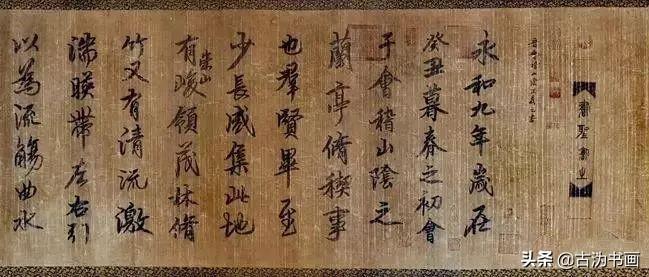 永和九年歲在
癸丑暮春之初會
于會稽山陰之
蘭亭脩稧事
也羣賢畢至
少長咸集此地
有崇山峻領茂林脩
竹又有清流激
湍暎帶左右引
以為流觴曲水
头条 @古沩书画